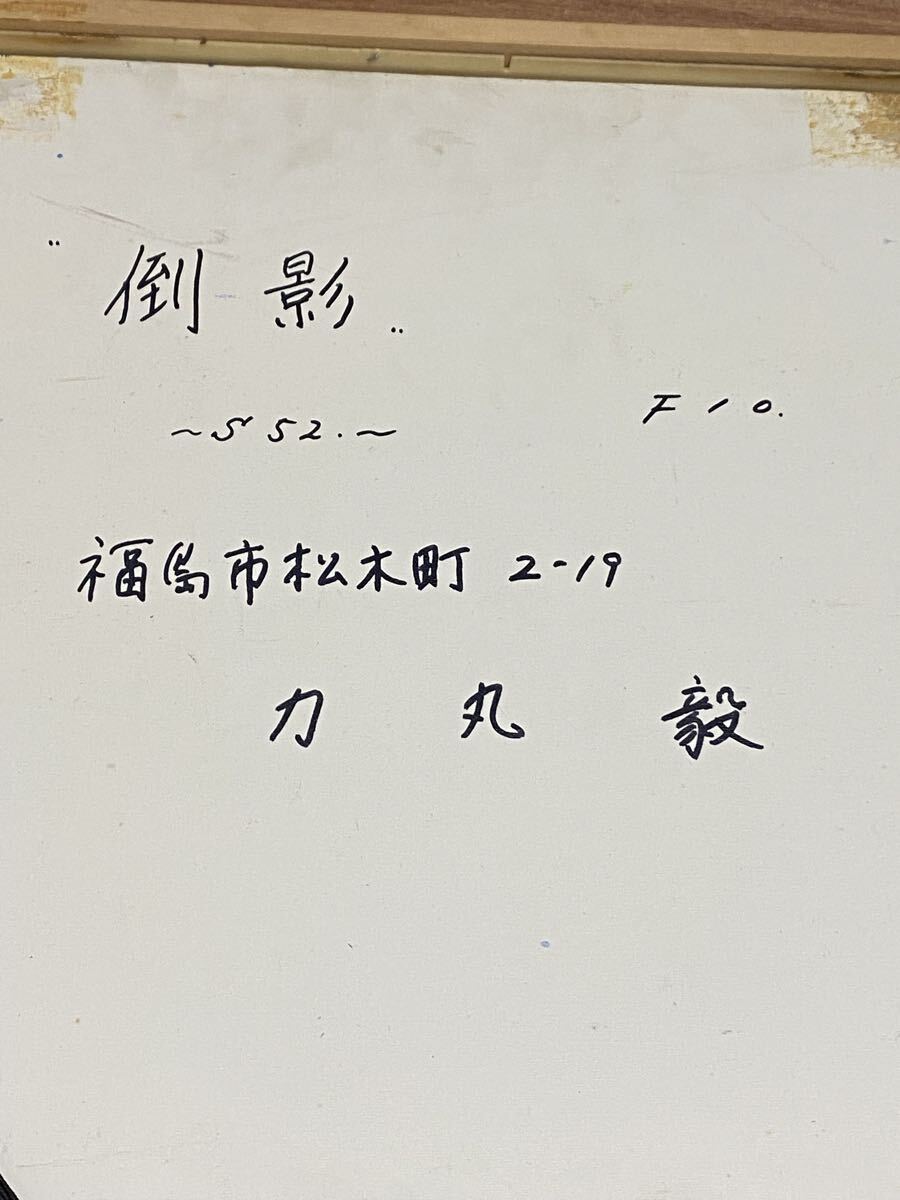 "倒影"
～S52.～ F10.
福島市松木町 2-19
力丸毅